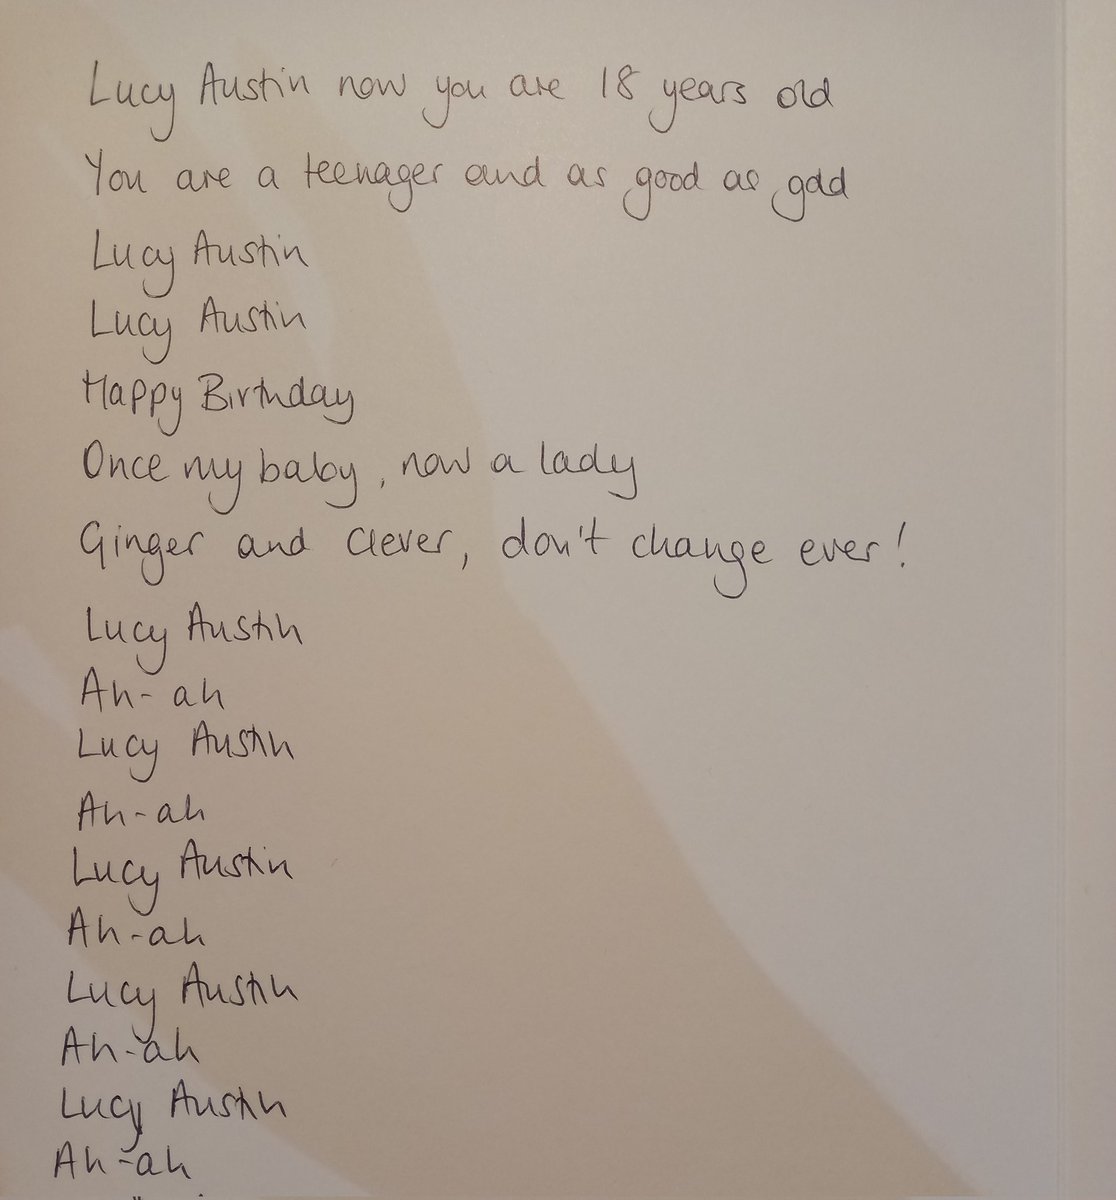 Lucy Austin now you are 18 years old
You are a teenager and as good as gold
Lucy Austin
Lucy Austin
Happy Birthday
Once my baby, now a lady
Ginger and clever, don't change ever!
Lucy Austin
Ah-ah
Lucy Austin
Ah-ah
Lucy Austin
Ah-ah
Lucy Austin
Ah-ah
Lucy Austin
Ah-ah